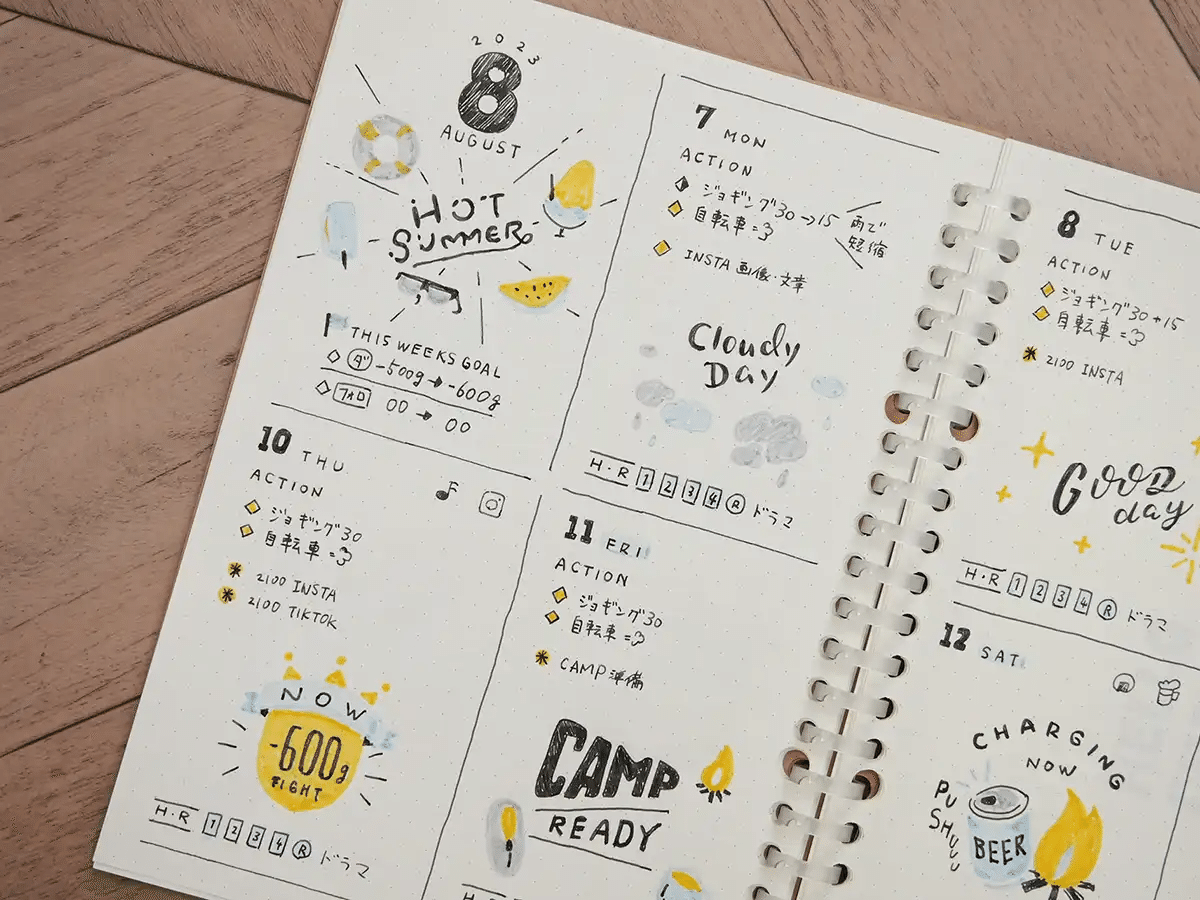 2023
8
AUGUST
HOT
SUMMER
THIS WEEKS GOAL
ダ -500g → -600g
フォロ 00 → 00
7 MON
ACTION
ジョギング30→15
雨で
短縮
自転車=3
INSTA 画像・文章
Cloudy
Day
H・R 1 2 3 4 R ドラマ
8 TUE
ACTION
ジョギング30+15
自転車=3
2100 INSTA
GOOD
day
H・R 1 2 3 4 R ドラマ
10 THU
ACTION
ジョギング30
自転車=3
2100 INSTA
2100 TIKTOK
NOW
-600g
FIGHT
H・R 1 2 3 4 R ドラマ
11 FRI
ACTION
ジョギング30
自転車=3
CAMP準備
CAMP
READY
H・R
12 SAT
CHARGING
NOW
PU
SHUUU
BEER